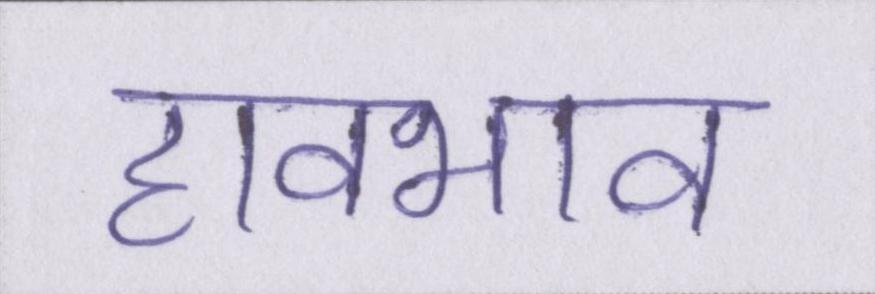 हावभाव